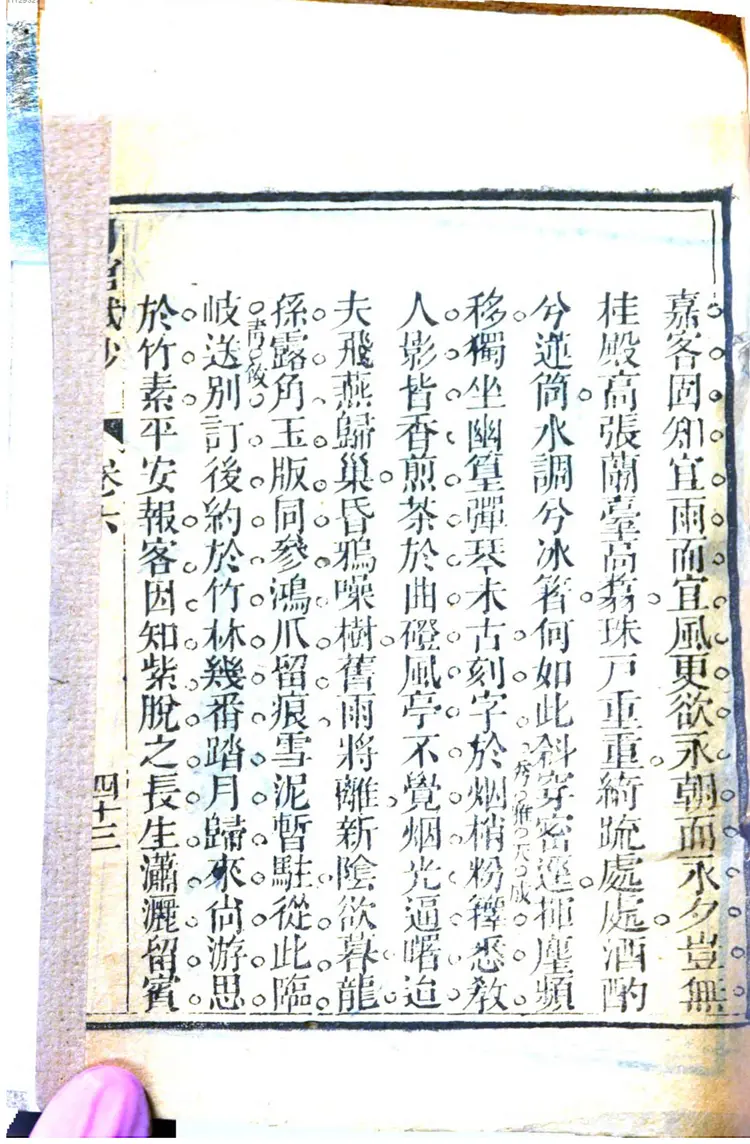 嘉客固知宜雨而宜風更欲永朝而永夕豈無
桂殿高張蘭臺高翥珠戸重重綺疏處處酒酌
兮蓮筒水調兮冰箸何如此斜穿密邃揮麈頻
秀雅天成
移獨坐幽篁彈琴未古刻字於烟梢粉籜悉教
人影皆香煎茶於曲磴風亭不覺烟光逼曙迨
夫飛燕歸巢昏鴉噪樹舊雨將離新陰欲暮龍
孫露角玉版同參鴻爪留痕雪泥暫駐從此臨
岐送別訂後約於竹林幾番踏月歸來尙游思
於竹素平安報客因知紫脫之長生瀟灑留賓
卷六
四十三